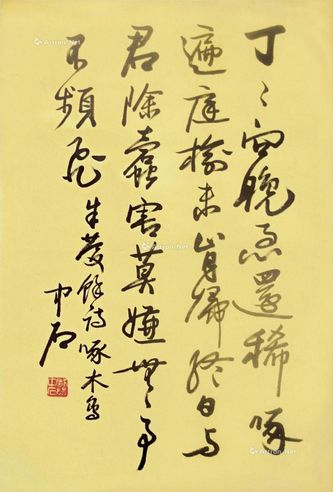 丁〻向晚急還稀啄
遍庭榆未肯歸終日与
君除蠹害莫嫌無事
不頻飛 朱慶餘詩啄木鳥
中石